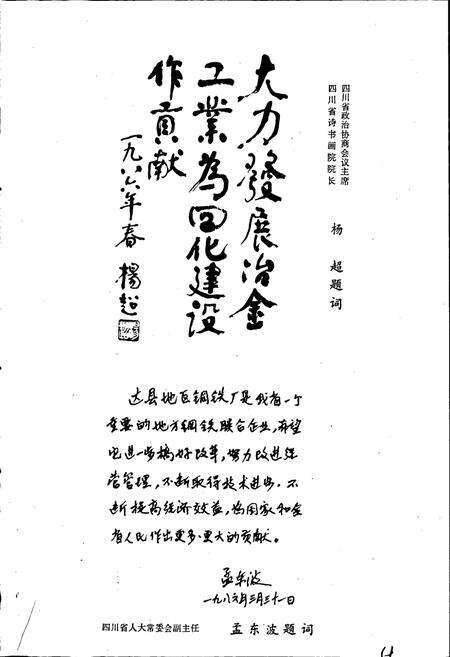 四川省政治协商会议主席
四川省诗书画院院长
杨超题词
大力發展冶金
工業為四化建設
作貢献
一九八六年春 楊超
达县地区钢铁厂是我省一个
重要的地方钢铁联合企业,希望
进一步搞好改革,努力改进经
营管理,不断取得技术进步,不
断提高经济效益,为国家和全
省人民作出更多更大的贡献。
孟东波
一九八六年三月三十一日
四川省人大常委会副主任 孟东波题词